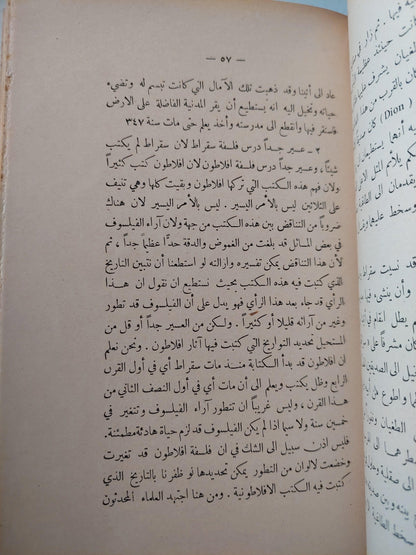 — ٥٧ —
عاد الى أثينا وقد ذهبت تلك الآمال التي كانت تبسم له وتضيء
حياته وتخيل اليه انه يستطيع أن يقر المدنية الفاضلة على الارض
فاستقر فيها وانقطع الى مدرسته وأخذ يعلم حتى مات سنة ٣٤٧
٢ – عسير جداً درس فلسفة سقراط لان سقراط لم يكتب
شيئاً، وعسير جداً درس فلسفة افلاطون لان افلاطون كتب كثيراً
ولان فهم هذه الكتب التي تركها افلاطون وبقيت كلها وهي تنيف
على الثلاثين ليس بالأمر اليسير. ليس بالأمر اليسير لان هناك
ضروباً من التناقض بين هذه الكتب من جهة ولان آراء الفيلسوف
في بعض المسائل قد بلغت من الغموض والدقة حداً عظيماً جداً، ثم
لان هذا التناقض يمكن تفسيره وازالته لو استطعنا أن نتبين التاريخ
الذي كتبت فيه هذه الكتب بحيث نستطيع ان نقول ان هذا
الرأي قد جاء بعد هذا الرأي فهو يدل على أن الفيلسوف قد تطور
وغير من آرائه قليلا أو كثيراً. ولكن من العسير جداً أو قل من
المستحيل تحديد التواريخ التي كتبت فيها آثار افلاطون. ونحن نعلم
ان افلاطون قد بدأ الكتابة منذ مات سقراط أي في أول القرن
الرابع وظل يكتب ويعلم الى أن مات أي في أول النصف الثاني من
هذا القرن، وليس غريباً أن تتطور آراء الفيلسوف وتتغير في
خمسين سنة ولا سيما اذا لم يكن الفيلسوف قد لزم حياة هادئة مطمئنة.
فليس اذن سبيل الى الشك في ان فلسفة افلاطون قد تغيرت
وخضعت لالوان من التطور يمكن تحديدها لو ظفرنا بالتاريخ الذي
كتبت فيه الكتب الافلاطونية. ومن هنا اجتهد العلماء المحدثون